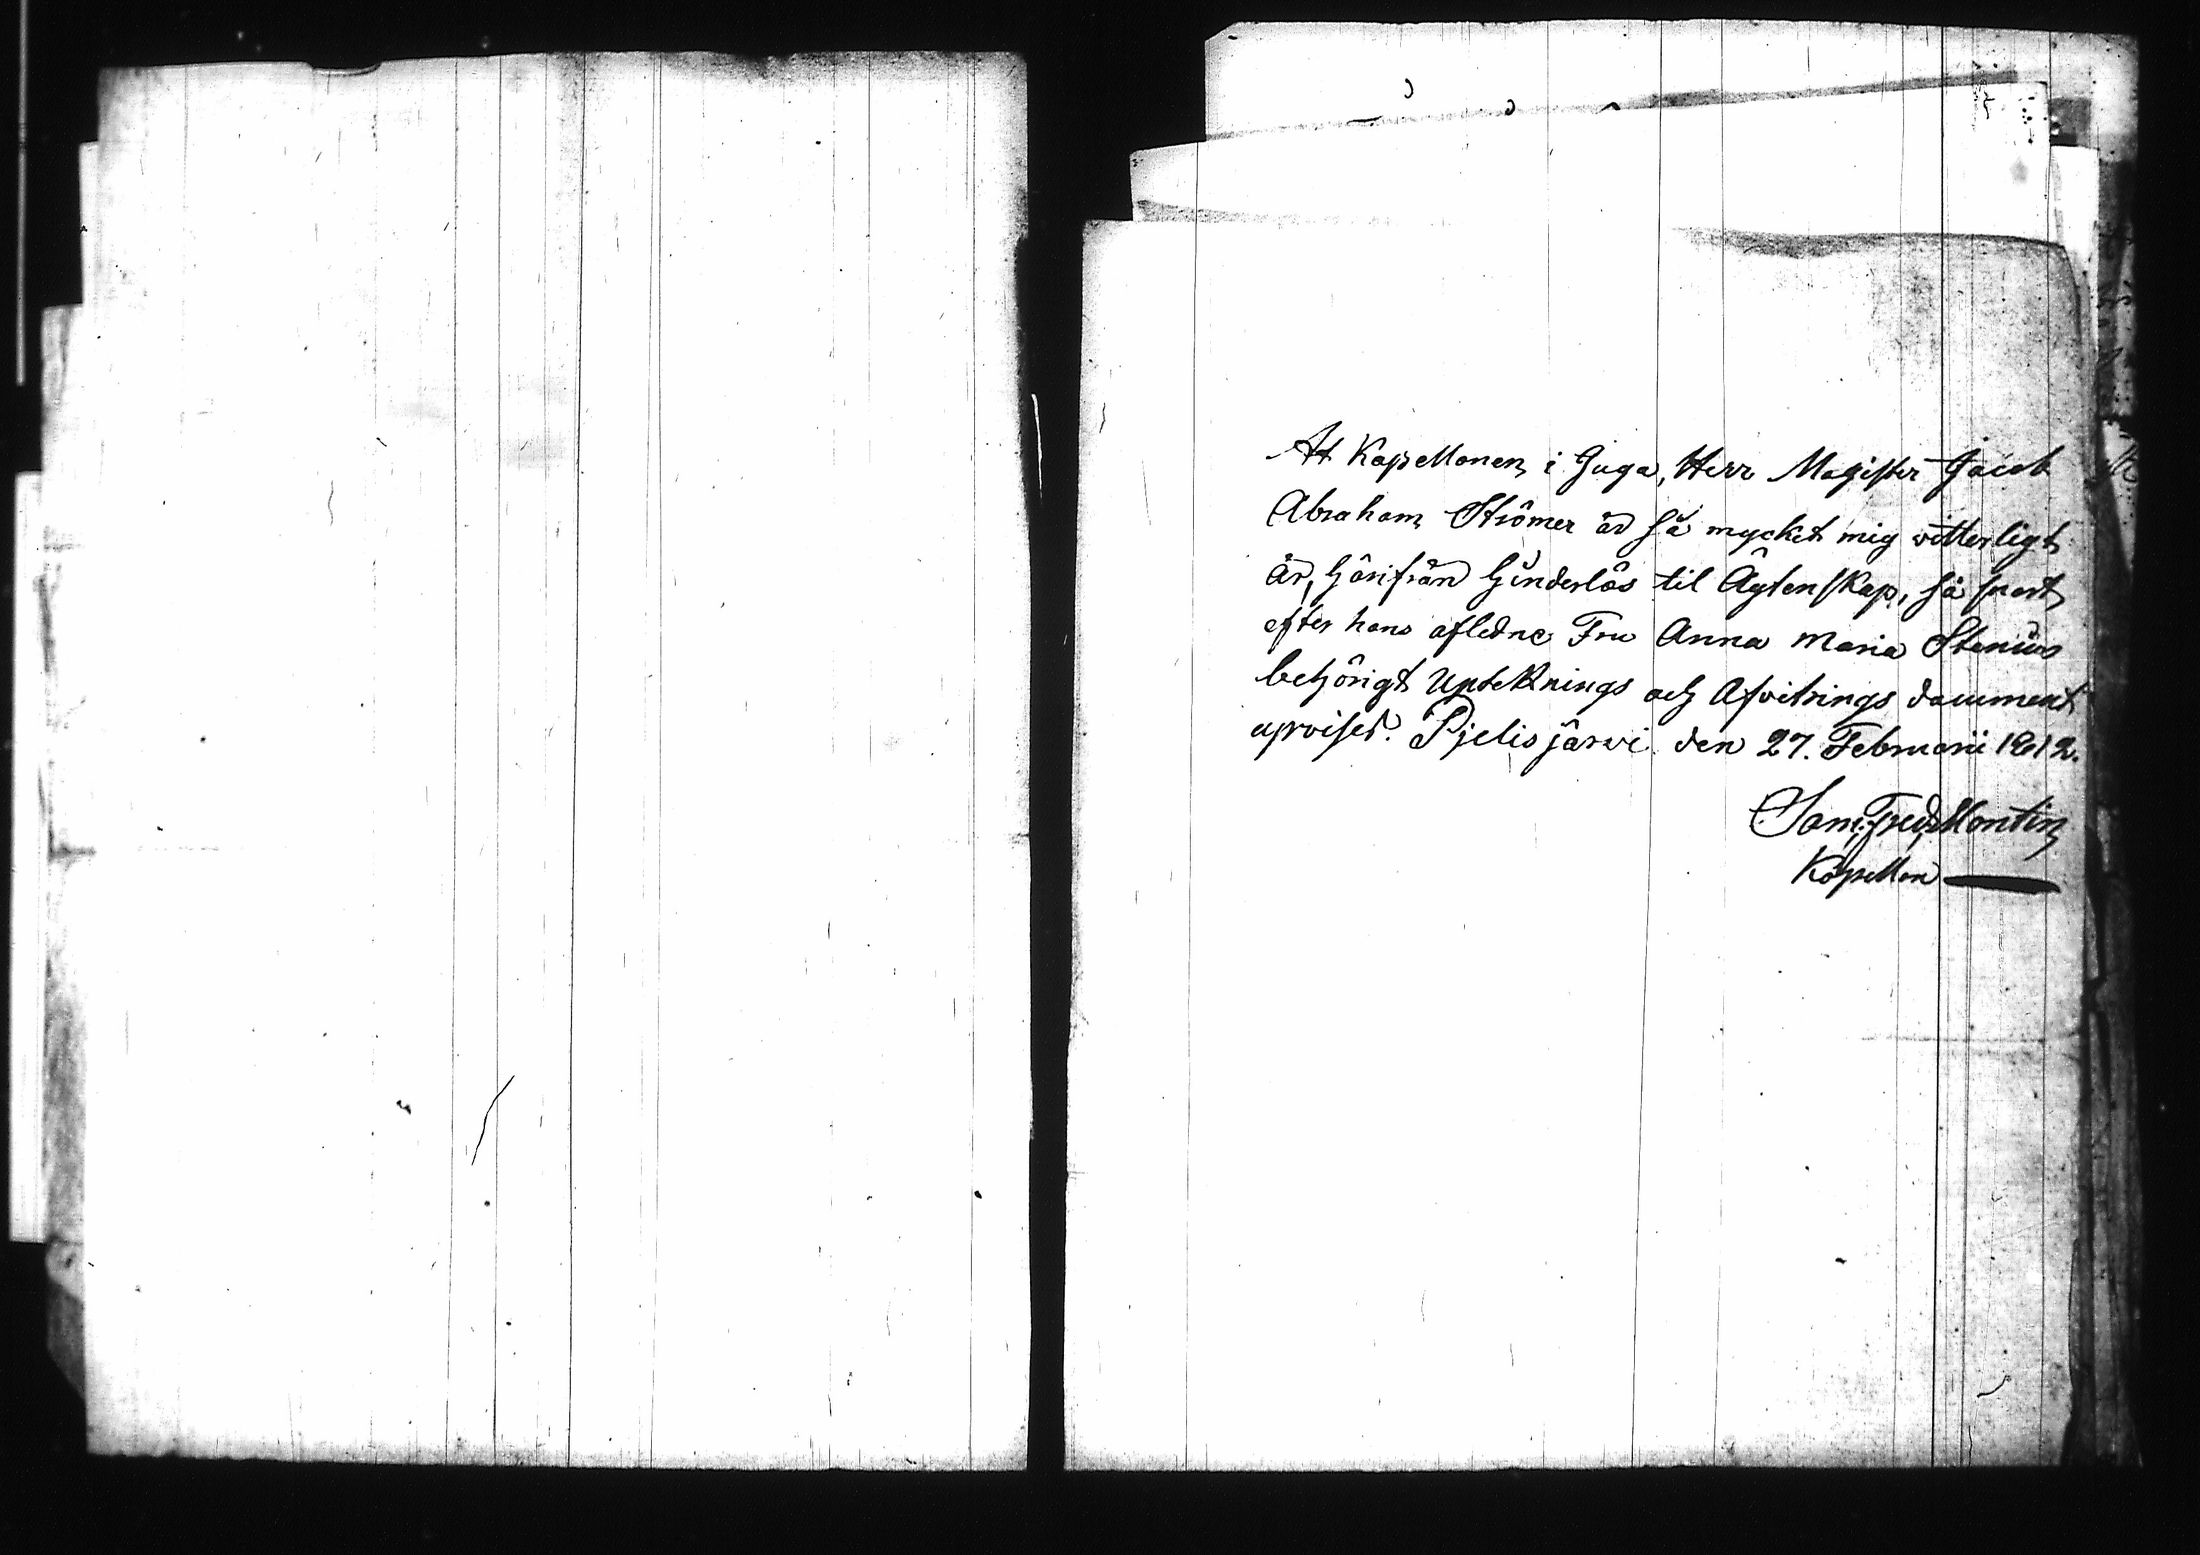 At Kapellanen i Juga, Herr Magister Jacob
Abraham Strömer är så mycket mig witterligt
är, härifrån hinderlös til Ägtenskap, så snart
efter hans aflidne Fru Anna Maria Stenius
behörigt Upteknings och Afvitrings document
upvised. Pjelisjärvi den 27. Februarii 1812.
Sam. Fred. Montin
Kapellan